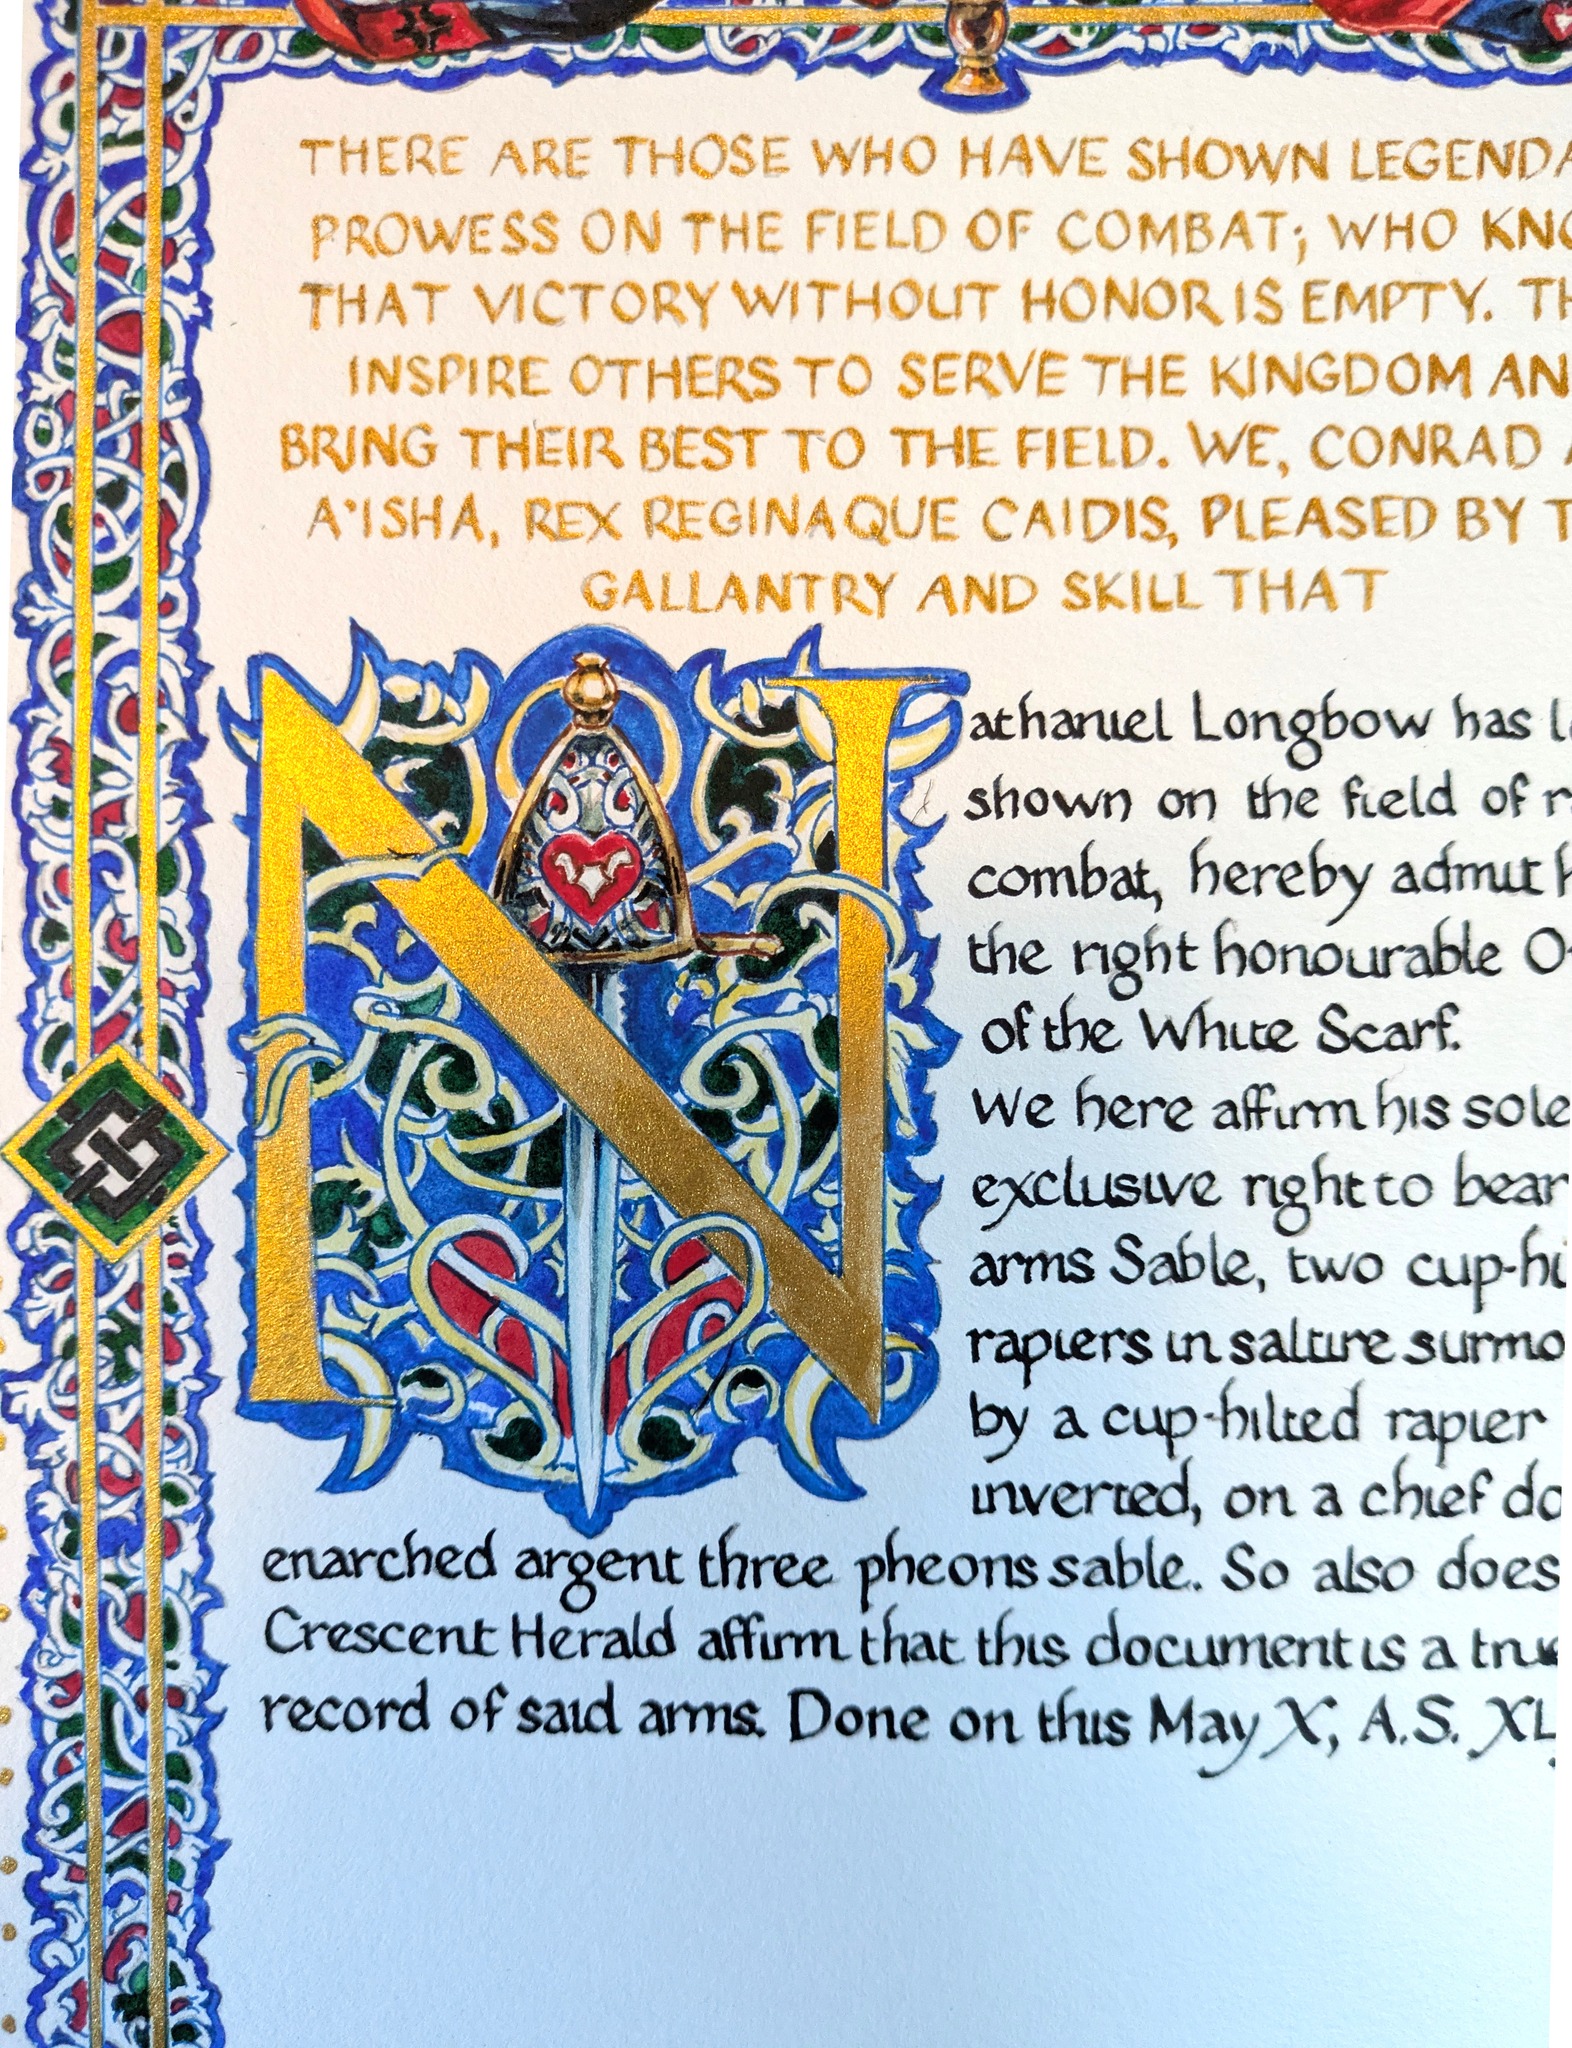 THERE ARE THOSE WHO HAVE SHOWN LEGENDA
PROWESS ON THE FIELD OF COMBAT; WHO KNO
THAT VICTORY WITHOUT HONOR IS EMPTY. TH
INSPIRE OTHERS TO SERVE THE KINGDOM AN
BRING THEIR BEST TO THE FIELD. WE, CONRAD A
A'ISHA, REX REGINAQUE CAIDIS, PLEASED BY T
GALLANTRY AND SKILL THAT
Nathaniel Longbow has
shown on the field of r
combat, hereby admit h
the right honourable O
of the White Scarf.
We here affirm his sole
exclusive right to bear
arms Sable, two cup-hi
rapiers in saltire surmo
by a cup-hilted rapier
inverted, on a chief do
enarched argent three pheons sable. So also does
Crescent Herald affirm that this document is a true
record of said arms. Done on this May X, A.S. XL